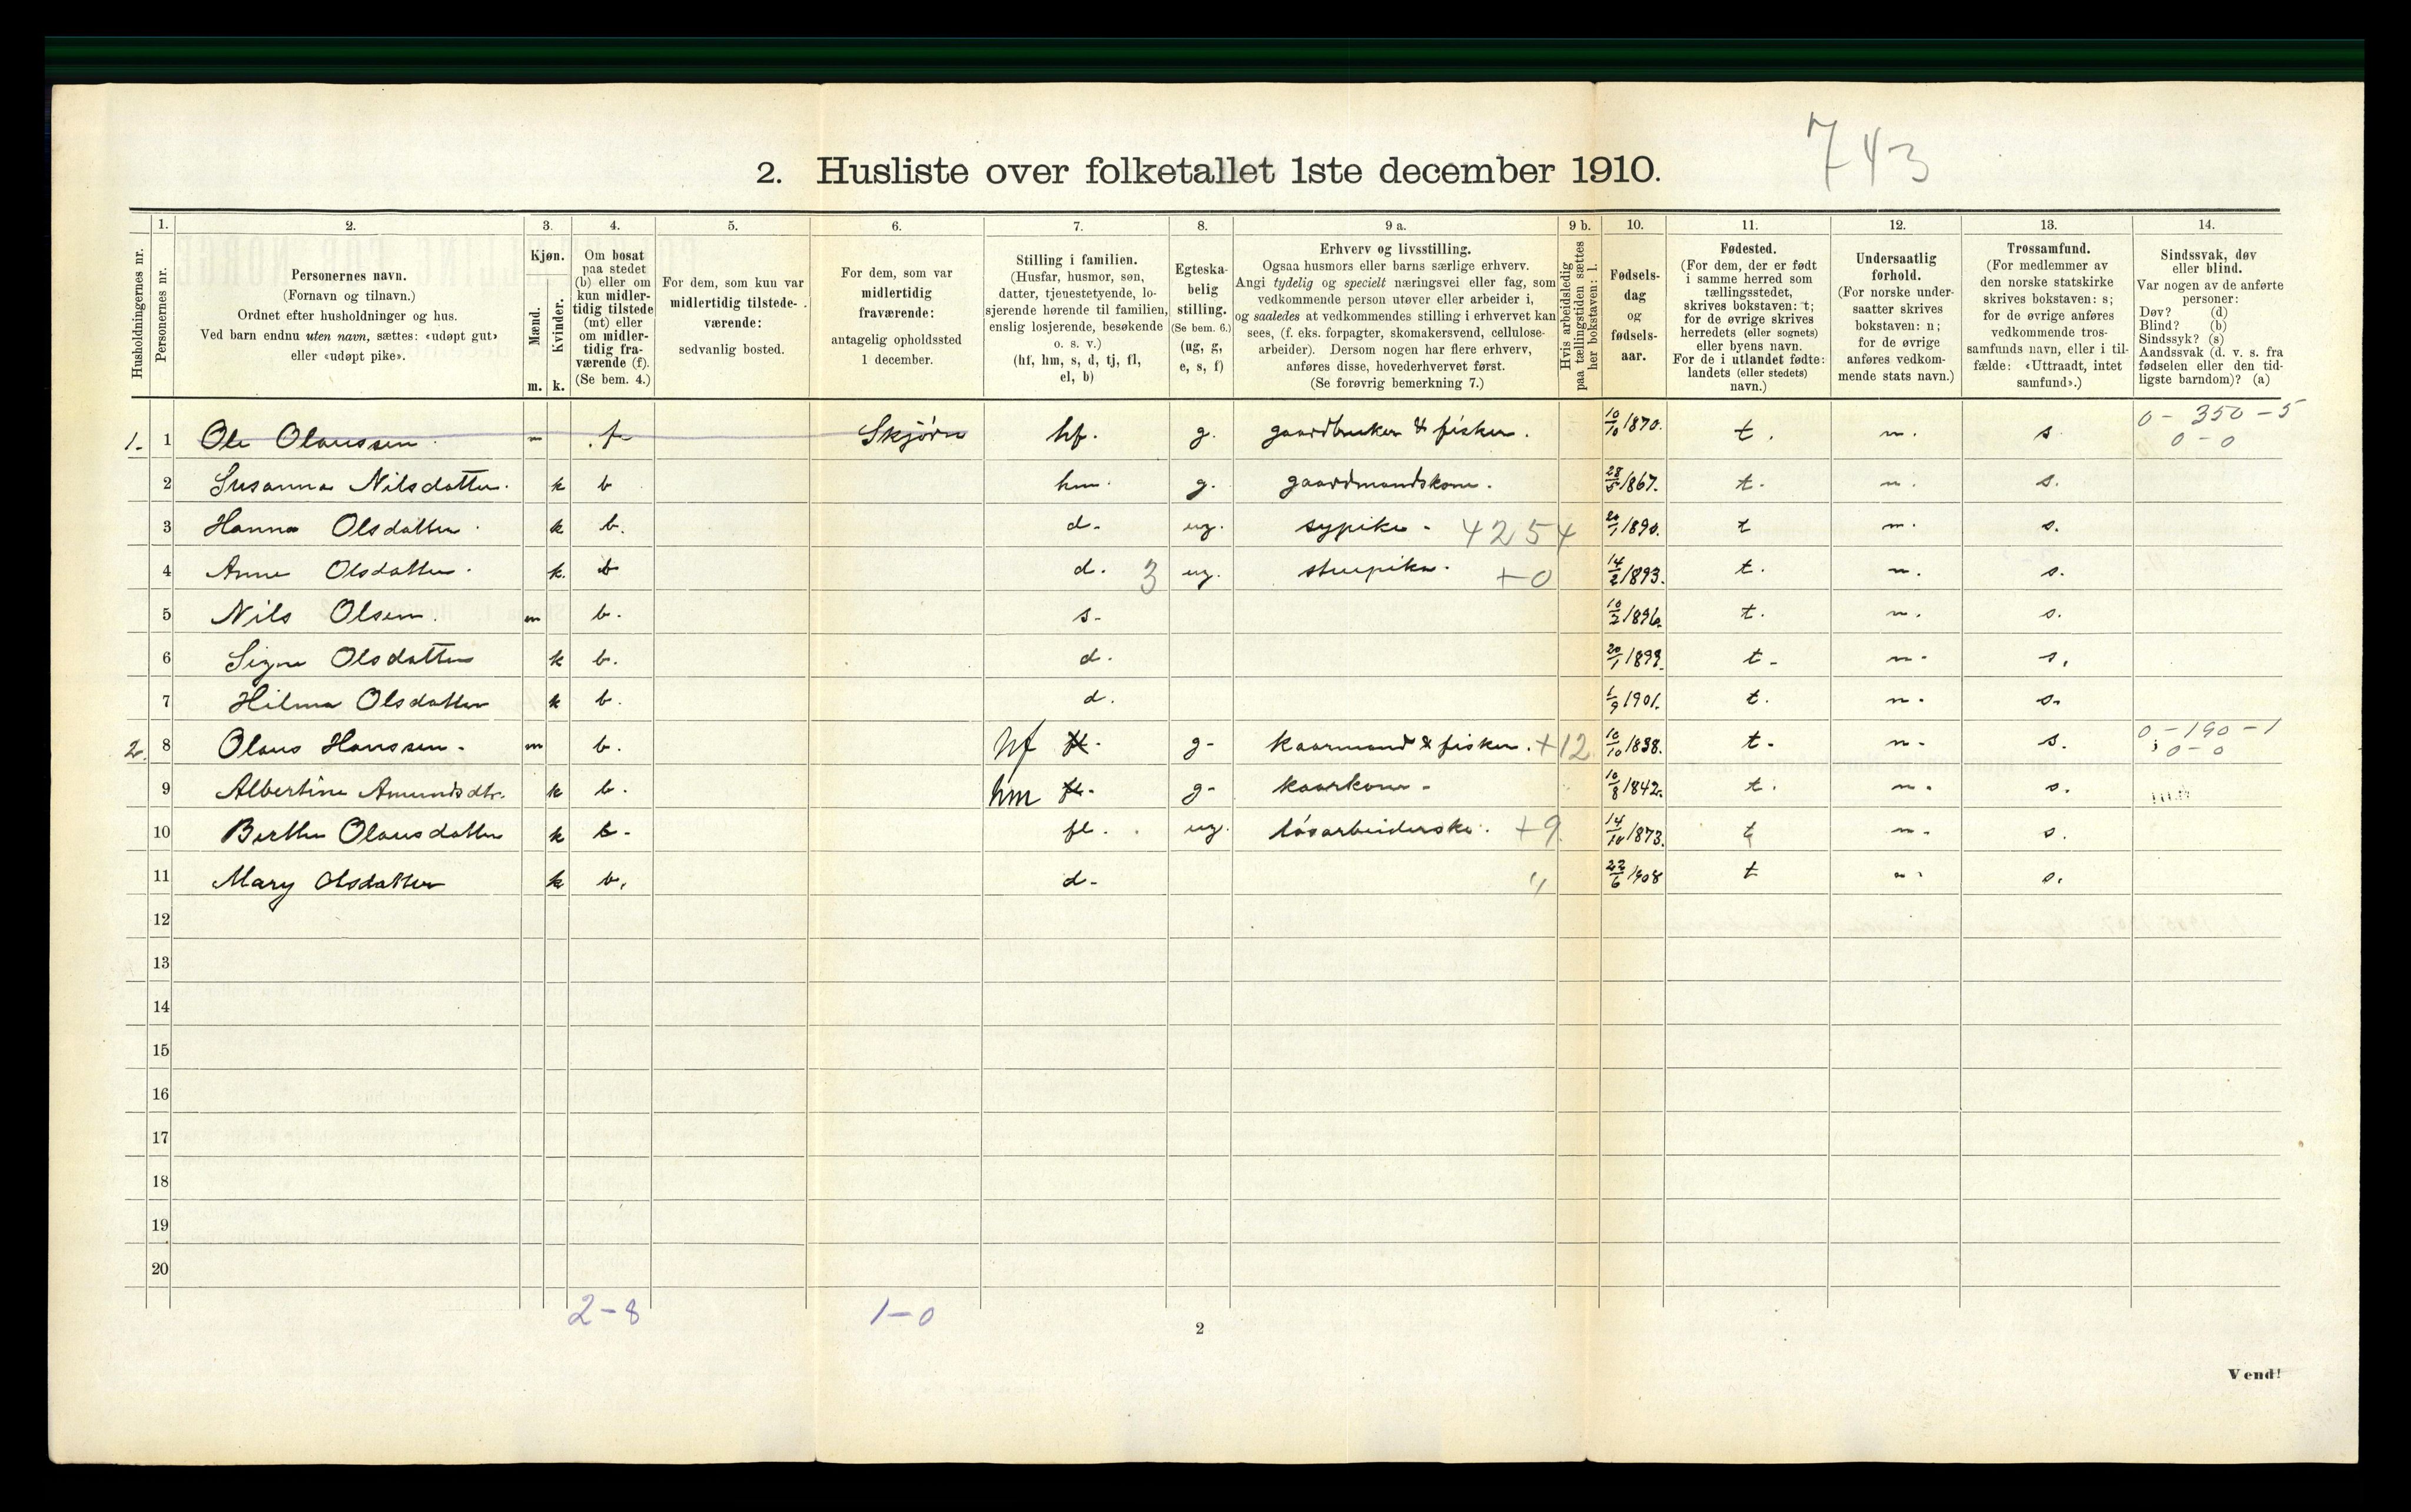 743
2. Husliste over folketallet 1ste december 1910.
1. 2. 3. 4. 5. 6. 7. 8. 9 a. 9 b. 10. 11. 12. 13. 14.
Husholdningernes nr.
Personernes nr.
Personernes navn.
(Fornavn og tilnavn.)
Ordnet efter husholdninger og hus.
Ved barn endnu uten navn, sættes: «udøpt gut»
eller «udøpt pike».
Kjøn.
Mænd.
Kvinder.
m. k.
Om bosat
paa stedet
(b) eller om
kun midler-
tidig tilstede
(mt) eller
om midler-
tidig fra-
værende (f).
(Se bem. 4.)
For dem, som kun var
midlertidig tilstede-
værende:
sedvanlig bosted.
For dem, som var
midlertidig
fraværende:
antagelig opholdssted
1 december.
Stilling i familien.
(Husfar, husmor, søn,
datter, tjenestetyende, lo-
sjerende hørende til familien,
enslig losjerende, besøkende
o. s. v.)
(hf, hm, s, d, tj, fl,
el, b)
Egteska-
belig
stilling.
(Se bem. 6.)
(ug, g,
e, s, f)
Erhverv og livsstilling.
Ogsaa husmors eller barns særlige erhverv.
Angi tydelig og specielt næringsvei eller fag, som
vedkommende person utøver eller arbeider i,
og saaledes at vedkommendes stilling i erhvervet kan
sees, (f. eks. forpagter, skomakersvend, cellulose-
arbeider). Dersom nogen har flere erhverv,
anføres disse, hovederhvervet først.
(Se forøvrig bemerkning 7.)
Hvis arbeidsledig
paa tællingstiden sættes
her bokstaven: l.
Fødsels-
dag
og
fødsels-
aar.
Fødested.
(For dem, der er født
i samme herred som
tællingsstedet,
skrives bokstaven: t;
for de øvrige skrives
herredets (eller sognets)
eller byens navn.
For de i utlandet fødte:
landets (eller stedets)
navn.)
Undersaatlig
forhold.
(For norske under-
saatter skrives
bokstaven: n;
for de øvrige
anføres vedkom-
mende stats navn.)
Trossamfund.
(For medlemmer av
den norske statskirke
skrives bokstaven: s;
for de øvrige anføres
vedkommende tros-
samfunds navn, eller i til-
fælde: «Uttraadt, intet
samfund».)
Sindssvak, døv
eller blind.
Var nogen av de anførte
personer:
Døv? (d)
Blind? (b)
Sindssyk? (s)
Aandssvak (d. v. s. fra
fødselen eller den tid-
ligste barndom)? (a)
1. 1 Ole Olaussen. m f Skjørn hf. g. gaardbruker & fisker. 10/10 1870. t. n. s 0 - 350 - 5
0 - 0
2 Susanna Nilsdatter. k b hm. g. gaardmandskone. 28/5 1867. t. n. s.
3 Hanna Olsdatter. k b. d. ug. sypike. 4254 20/1 1890. t n. s.
4 Anne Olsdatter. k. b d. 3 ug. stuepike. +0 14/2 1893. t. n. s.
5 Nils Olsen. m b. s. 10/2 1896. t. n. s.
6 Signe Olsdatter k b. d. 20/1 1899. t. n. s.
7 Hilma Olsdatter k b. d. 1/9 1901. t. n. s.
2. 8 Olaus Hanssen. m b. hf fl. g. kaarmand & fisker. +12 10/10 1838. t. n. s. 0 - 190 - 1
; 0 - 0
9 Albertine Amundsdtr. k b. hm fl. g. kaarkone. 10/8 1842. t. n. s.
10 Berthe Olausdatter k b. fl. ug. løsarbeiderske. +9 14/10 1873. t n. s.
11 Mary Olsdatter k b. d. " 22/6 1908 t n. s.
12
13
14
15
16
17
18
19
20
2-8 1-0
2
Vend!